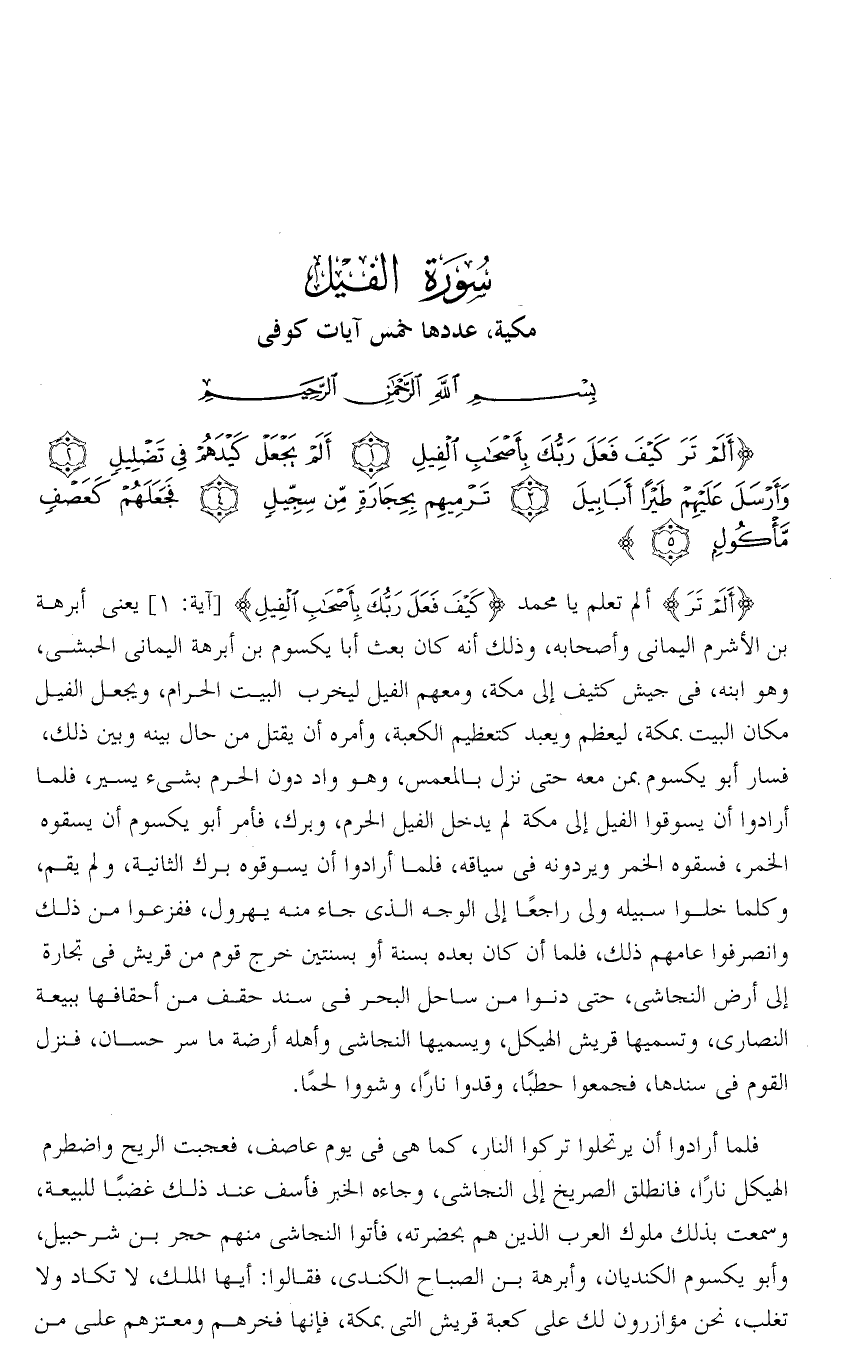 سُورَةُ الْفِيلِ
مكية، عددها خمس آيات كوفى
بِسْمِ اللَّهِ الرَّحْمَٰنِ الرَّحِيمِ
﴿أَلَمْ تَرَ كَيْفَ فَعَلَ رَبُّكَ بِأَصْحَابِ الْفِيلِ ۝١ أَلَمْ يَجْعَلْ كَيْدَهُمْ فِى تَضْلِيلٍ ۝٢
وَأَرْسَلَ عَلَيْهِمْ طَيْرًا أَبَابِيلَ ۝٣ تَرْمِيهِم بِحِجَارَةٍ مِّن سِجِّيلٍ ۝٤ فَجَعَلَهُمْ كَعَصْفٍ
مَّأْكُولٍ ۝٥﴾
﴿أَلَمْ تَرَ﴾ ألم تعلم يا محمد ﴿كَيْفَ فَعَلَ رَبُّكَ بِأَصْحَابِ الْفِيلِ﴾ [آية: ١] يعنى أبرهة
بن الأشرم اليمانى وأصحابه، وذلك أنه كان بعث أبا يكسوم بن أبرهة اليمانى الحبشى،
وهو ابنه، فى جيش كثيف إلى مكة، ومعهم الفيل ليخرب البيت الحرام، ويجعل الفيل
مكان البيت بمكة، ليعظم ويعبد كتعظيم الكعبة، وأمره أن يقتل من حال بينه وبين ذلك،
فسار أبو يكسوم بمن معه حتى نزل بالمعمس، وهو واد دون الحرم بشىء يسير، فلما
أرادوا أن يسوقوا الفيل إلى مكة لم يدخل الفيل الحرم، وبرك، فأمر أبو يكسوم أن يسقوه
الخمر، فسقوه الخمر ويردونه فى سياقه، فلما أرادوا أن يسوقوه برك الثانية، ولم يقم،
وكلما خلوا سبيله ولى راجعًا إلى الوجه الذى جاء منه يهرول، ففزعوا من ذلك
وانصرفوا عامهم ذلك، فلما أن كان بعده بسنة أو بسنتين خرج قوم من قريش فى تجارة
إلى أرض النجاشى، حتى دنوا من ساحل البحر فى سند حقف من أحقافها ببيعة
النصارى، وتسميها قريش الهيكل، ويسميها النجاشى وأهله أرضة ما سر حسان، فنزل
القوم فى سندها، فجمعوا حطبًا، وقدوا نارًا، وشووا لحمًا.
فلما أرادوا أن يرتحلوا تركوا النار، كما هى فى يوم عاصف، فعجبت الريح واضطرم
الهيكل نارًا، فانطلق الصريخ إلى النجاشى، وجاءه الخبر فأسف عند ذلك غضبًا للبيعة،
وسمعت بذلك ملوك العرب الذين هم بحضرته، فأتوا النجاشى منهم حجر بن شرحبيل،
وأبو يكسوم الكنديان، وأبرهة بن الصباح الكندى، فقالوا: أيها الملك، لا تكاد ولا
تغلب، نحن مؤازرون لك على كعبة قريش التى بمكة، فإنها فخرهم ومعتزهم على من